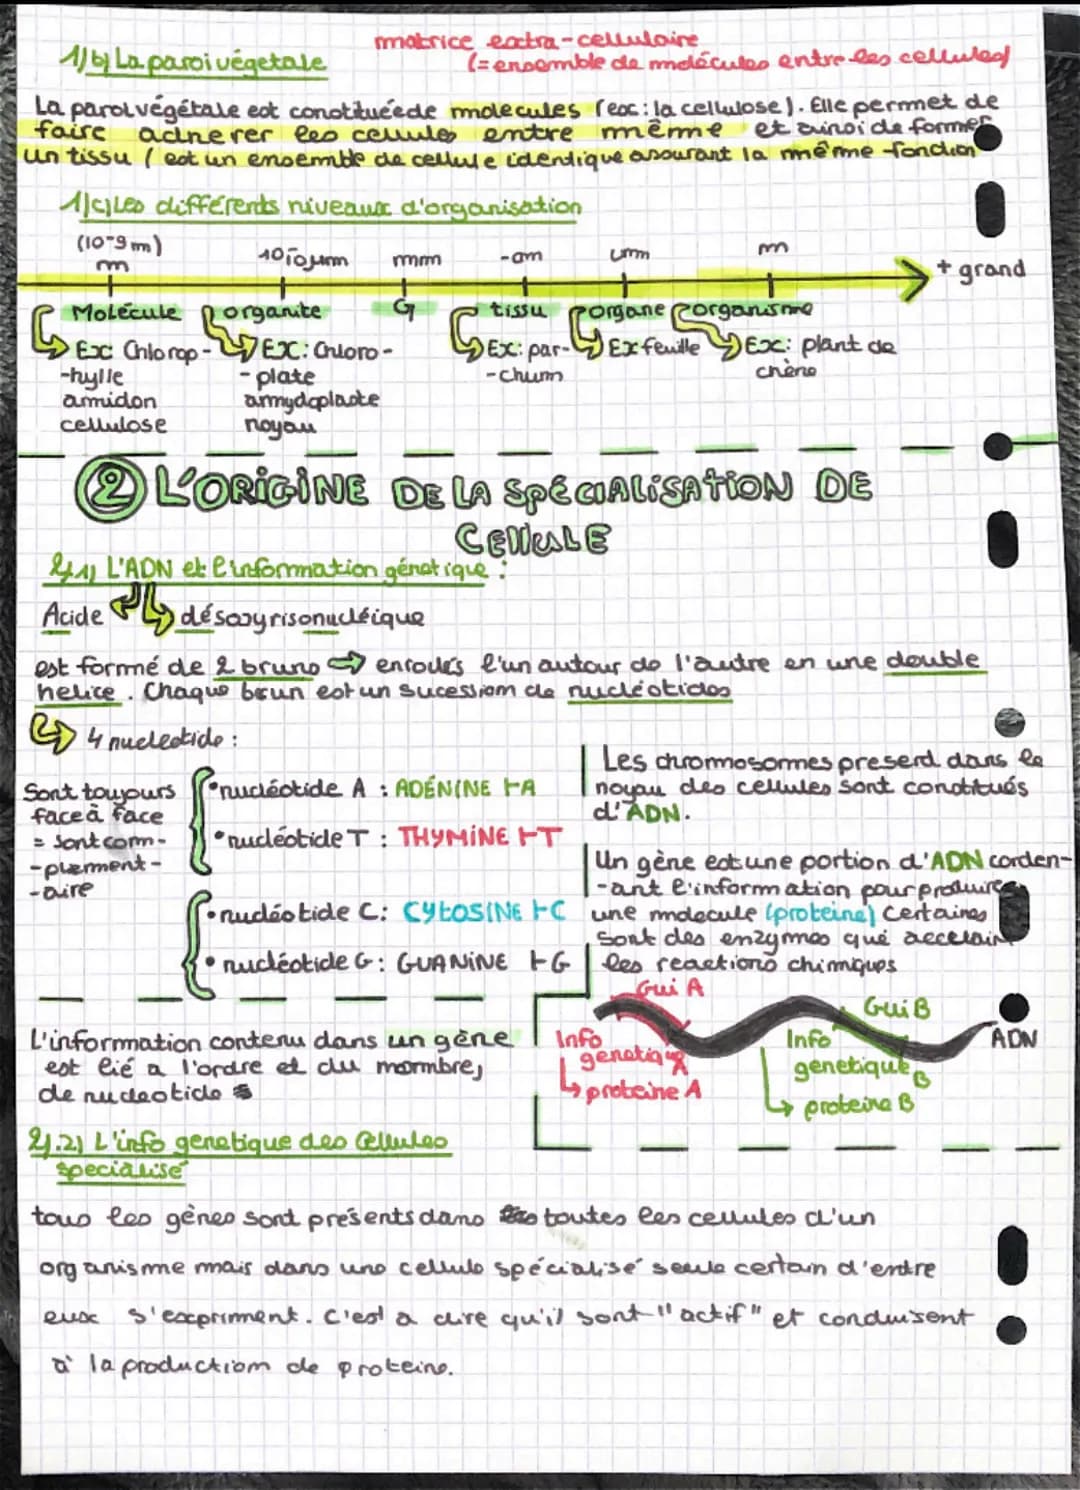 matrice extra-cellulaire
1) b) La paroi végetale (= ensemble de molécules entre les cellules)
La paroi végétale est constituée de molecules (ex: la cellulose). Elle permet de
faire adherer les cellules entre même et ainsi de former
un tissu (est un ensemble de cellule identique assurant la même fonction
1) c) Les différents niveaux d'organisation
(10-9m)
m 10 µm mm -am um m + grand
Molécule organite G tissu organe organisme
Ex: Chlorop- EX: Chloro- Ex: par- Ex feuille Ex: plant de
-hylle -plate -chum chène
amidon amydoplaste
cellulose noyau
② L'ORIGINE DE LA SPÉCIALISATION DE
CELLULE
2) 1) L'ADN et l'information génetique :
Acide désoxyrisonucléique
est formé de 2 bruns → enroulés l'un autour de l'autre en une double
helice. Chaque brun est un sucession de nucléotides
4 nucleotide :
Sont toujours
face à face
= sont com-
-plement-
-aire
• nucléotide A : ADÉNINE A
• nucléotide T : THYMINE T
• nucléotide C : CYTOSINE C
• nucléotide G : GUANINE G
Les chromosomes present dans le
noyau des cellules sont constitués
d'ADN.
Un gène est une portion d'ADN corden-
-ant l'information pour produire
une molecule (proteine) Certaines
sont des enzymes qui accelair
les reactions chimiques
Gui A
Gui B
ADN
Info
genetique A
proteine A
Info
genetique B
proteine B
L'information contenu dans un gène
est lié a l'ordre et du mombre,
de nucleotide
2).2) L'info genetique des Cellules
specialisé
tous les gènes sont présents dans toutes les cellules d'un
organisme mais dans une cellule spécialisé seule certain d'entre
eux s'expriment. C'est a dire qu'il sont "actif" et conduisent
à la production de proteine.